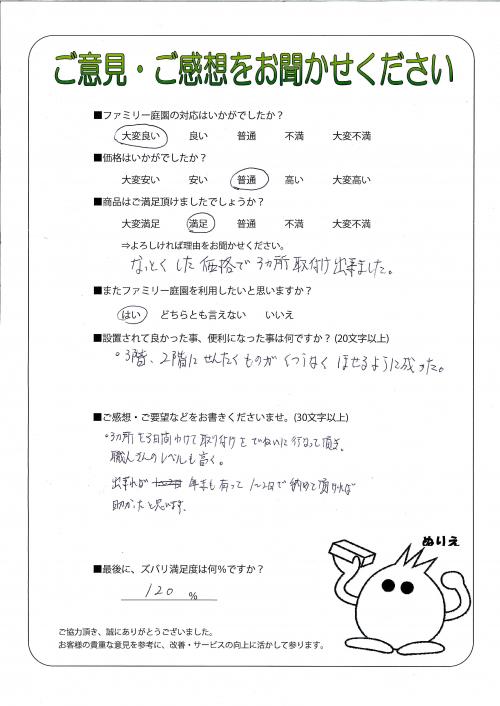 ご意見・ご感想をお聞かせください
■ファミリー庭園の対応はいかがでしたか？
大変良い 良い 普通 不満 大変不満
■価格はいかがでしたか？
大変安い 安い 普通 高い 大変高い
■商品はご満足頂けましたでしょうか？
大変満足 満足 普通 不満 大変不満
⇒よろしければ理由をお聞かせください。
なっとくした価格で3ヵ所取付け出来ました。
■またファミリー庭園を利用したいと思いますか？
はい どちらとも言えない いいえ
■設置されて良かった事、便利になった事は何ですか？(20文字以上)
。3階、2階にせんたくものがくつうなくほせるように成った。
■ご感想・ご要望などをお書きくださいませ。(30文字以上)
。3ヵ所を3日間かけて取り付けをていねいに行なって頂き、
職人さんのレベルも高く。
出来れば 年末も有って1〜2日で納めて頂ければ
助かったと思います。
ぬりえ
■最後に、ズバリ満足度は何％ですか？
120 ％
ご協力頂き、誠にありがとうございました。
お客様の貴重な意見を参考に、改善・サービスの向上に活かして参ります。